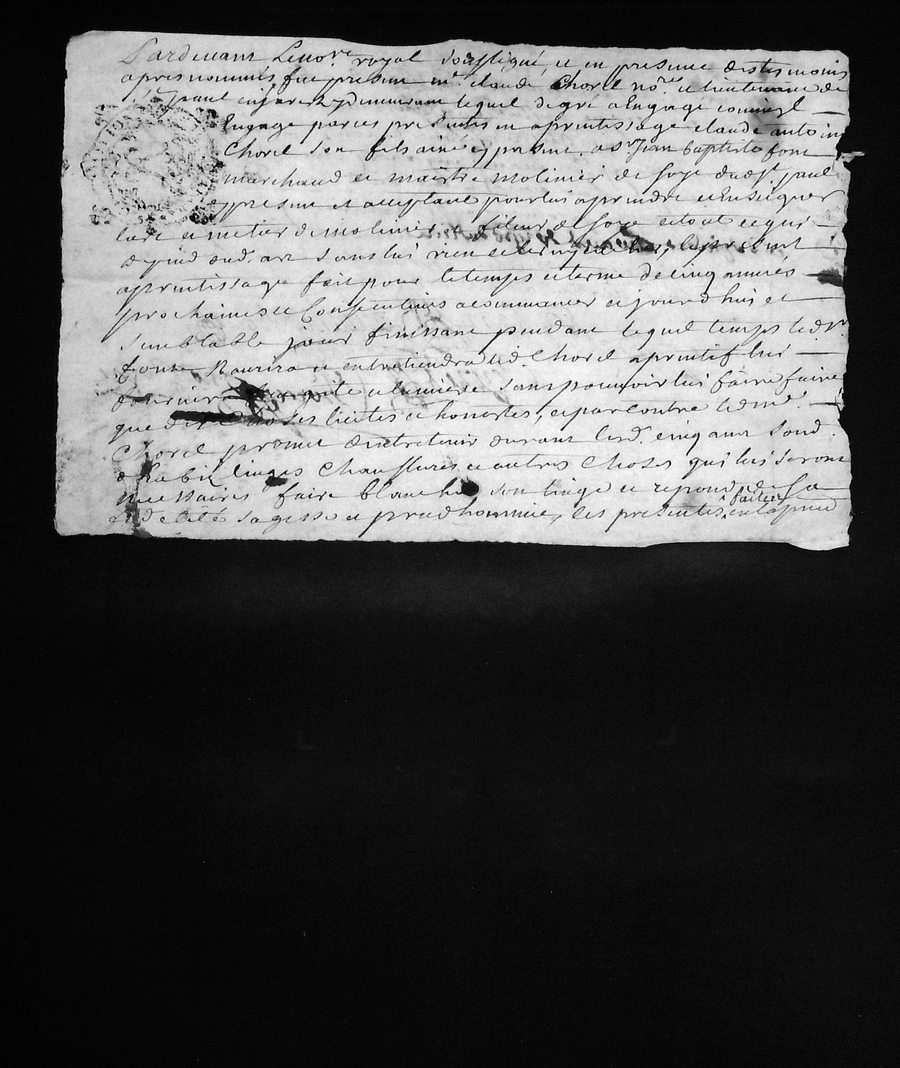 Pardevant Le no.re royal soussigné, et en presence des tesmoins
apres nommés fut present m.e claude Chorel no.re et lieutenant de
st paul en jarest y demeurant lequel de gré a Engagé comme il
Engage par ces presentes en aprentissage claude antoine
Chorel son fils ainé cy present, a s.r Jean baptiste font
marchand et maistre molinier de soye dud. st paul
cy present et acceptant pour lui aprendre et enseigner
l'art et metier de molinier et fileur de soye et tout ce qui
depend dud. art sans lui rien celer le present
aprentissage fait pour le temps et terme de cinq années
prochaines et Consecutives a commancer ce jourd'hui et
semblable jour finissant pendant lequel temps led. s.r
font Nourrira et entretiendra led. Chorel aprentif lui
fournira lumiere sans pouvoir lui faire faire
que des choses licites et honnestes, et par contre led. m.e
Chorel promet d'entretenir durant lesd. cinq ans sond.
d'habit linges Chaussures et autres Choses qui lui seront
necessaires faire blanchir son linge et repond de sa
fidelité sagesse et prudhommie, les presentes faittes